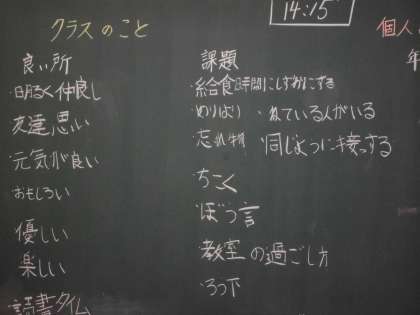 14:15
クラスのこと
個人
良い所
・明るく仲良し
・友達思い
・元気が良い
・おもしろい
・優しい
・楽しい
・読書タイム
課題
・給食時間にしずかにする
・めりはり ・ねている人がいる
・忘れ物 同じようにに接っする
・ちこく
・ぼう言
・教室の過ごし方
・ろう下